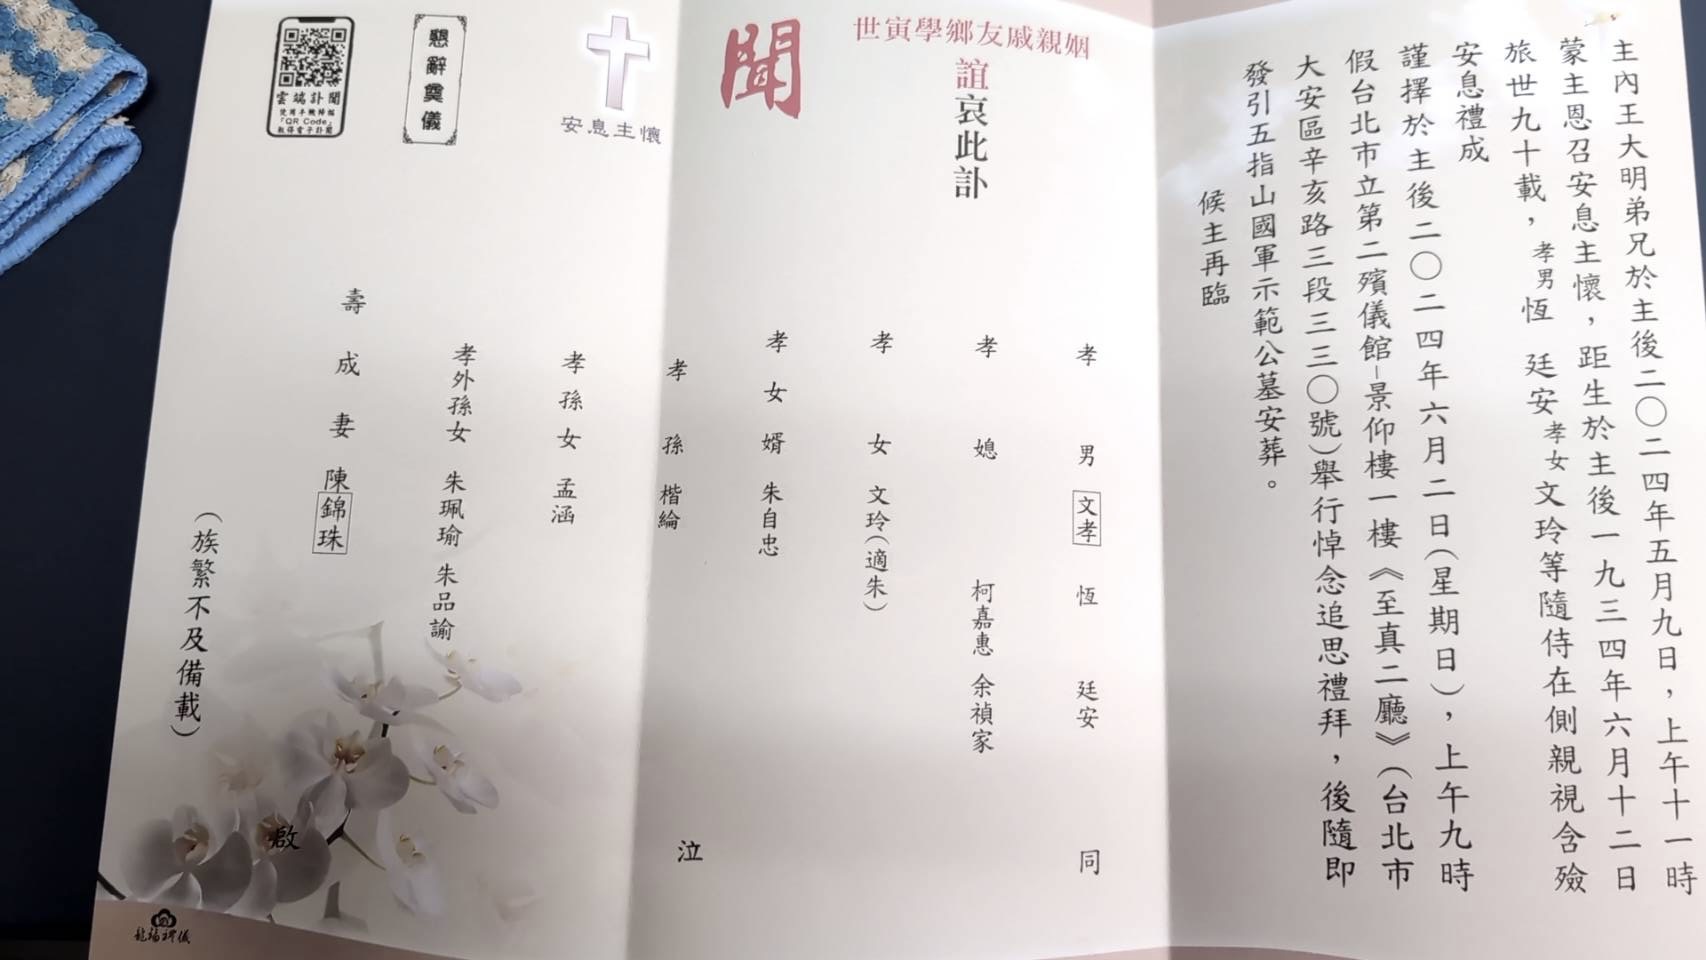 主內王大明弟兄於主後二〇二四年五月九日，上午十一時
蒙主恩召安息主懷，距生於主後一九三四年六月十二日
旅世九十載，孝男恆 廷安孝女文玲等隨侍在側親視含殮
安息禮成
謹擇於主後二〇二四年六月二日(星期日)，上午九時
假台北市立第二殯儀館-景仰樓一樓《至真二廳》(台北市
大安區辛亥路三段三三〇號)舉行悼念追思禮拜，後隨即
發引五指山國軍示範公墓安葬。
候主再臨
世寅學鄉友戚親姻
誼哀此訃
聞
孝男 文孝 恆 廷安 同
孝媳 柯嘉惠 余禎家
孝女 文玲(適朱)
孝女婿 朱自忠
孝孫 楷綸 泣
孝孫女 孟涵
孝外孫女 朱珮瑜 朱品諭
壽成妻 陳錦珠
啟
(族繁不及備載)
安息主懷
懇辭奠儀
雲端訃聞
使用手機掃描
「QR Code」
取得電子訃聞
龍福禮儀